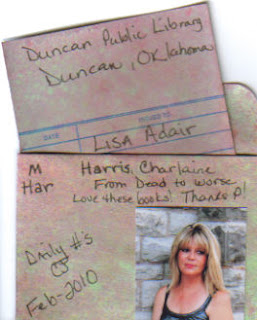 Duncan Public Library
Duncan, Oklahoma
DATE
ISSUED TO
Lisa Adair
M
Har
Harris, Charlaine
From Dead to worse
Love these books! Thanks P!
Emily #'s
CJ
Feb-2010